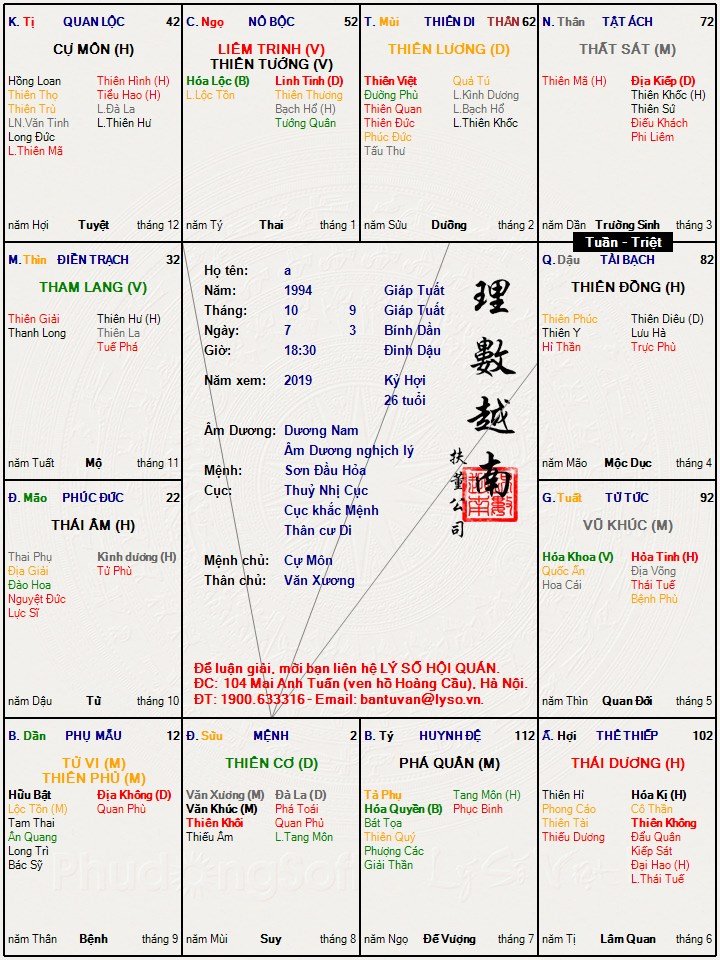 K. Tị QUAN LỘC 42
CỰ MÔN (H)
Hồng Loan Thiên Hình (H)
Thiên Thọ Tiểu Hao (H)
Thiên Trù L.Đà La
LN.Văn Tinh L.Thiên Hư
Long Đức
L.Thiên Mã
năm Hợi Tuyệt tháng 12
C. Ngọ NÔ BỘC 52
LIÊM TRINH (V)
THIÊN TƯỚNG (V)
Hóa Lộc (B) Linh Tinh (D)
L.Lộc Tồn Thiên Thương
Bạch Hổ (H)
Tướng Quân
năm Tý Thai tháng 1
T. Mùi THIÊN DI THÂN 62
THIÊN LƯƠNG (D)
Thiên Việt Quả Tú
Đường Phù L.Kình Dương
Thiên Quan L.Bạch Hổ
Thiên Đức L.Thiên Khốc
Phúc Đức
Tấu Thư
năm Sửu Dưỡng tháng 2
N. Thân TẬT ÁCH 72
THẤT SÁT (M)
Thiên Mã (H) Địa Kiếp (D)
Thiên Khốc (H)
Thiên Sứ
Điếu Khách
Phi Liêm
năm Dần Trường Sinh tháng 3
Tuần - Triệt
M. Thìn ĐIỀN TRẠCH 32
THAM LANG (V)
Thiên Giải Thiên Hư (H)
Thanh Long Thiên La
Tuế Phá
năm Tuất Mộ tháng 11
Họ tên: a
Năm: 1994 Giáp Tuất
Tháng: 10 9 Giáp Tuất
Ngày: 7 3 Bính Dần
Giờ: 18:30 Đinh Dậu
Năm xem: 2019 Kỷ Hợi
26 tuổi
Âm Dương: Dương Nam
Âm Dương nghịch lý
Mệnh: Sơn Đầu Hỏa
Cục: Thuỷ Nhị Cục
Cục khắc Mệnh
Thân cư Di
Mệnh chủ: Cự Môn
Thân chủ: Văn Xương
理數越南
扶董公司
Để luận giải, mời bạn liên hệ LÝ SỐ HỘI QUÁN.
ĐC: 104 Mai Anh Tuấn (ven hồ Hoàng Cầu), Hà Nội.
ĐT: 1900.633316 - Email: bantuvan@lyso.vn.
Q. Dậu TÀI BẠCH 82
THIÊN ĐỒNG (H)
Thiên Phúc Thiên Diêu (D)
Thiên Y Lưu Hà
Hỉ Thần Trực Phù
năm Mão Mộc Dục tháng 4
Đ. Mão PHÚC ĐỨC 22
THÁI ÂM (H)
Thai Phụ Kình dương (H)
Địa Giải Tử Phù
Đào Hoa
Nguyệt Đức
Lực Sĩ
năm Dậu Tử tháng 10
G. Tuất TỬ TỨC 92
VŨ KHÚC (M)
Hóa Khoa (V) Hỏa Tinh (H)
Quốc Ấn Địa Võng
Hoa Cái Thái Tuế
Bệnh Phù
năm Thìn Quan Đới tháng 5
B. Dần PHỤ MẪU 12
TỬ VI (M)
THIÊN PHỦ (M)
Hữu Bật Địa Không (D)
Lộc Tồn (M) Quan Phù
Tam Thai
Ân Quang
Long Trì
Bác Sỹ
năm Thân Bệnh tháng 9
Đ. Sửu MỆNH 2
THIÊN CƠ (D)
Văn Xương (M) Đà La (D)
Văn Khúc (M) Phá Toái
Thiên Khôi Quan Phủ
Thiếu Âm L.Tang Môn
năm Mùi Suy tháng 8
B. Tý HUYNH ĐỆ 112
PHÁ QUÂN (M)
Tả Phụ Tang Môn (H)
Hóa Quyền (B) Phục Binh
Bát Tọa
Thiên Quý
Phượng Các
Giải Thần
năm Ngọ Đế Vượng tháng 7
Ấ. Hợi THÊ THIẾP 102
THÁI DƯƠNG (H)
Thiên Hỉ Hóa Kị (H)
Phong Cáo Cô Thần
Thiên Tài Thiên Không
Thiếu Dương Đẩu Quân
Kiếp Sát
Đại Hao (H)
L.Thái Tuế
năm Tị Lâm Quan tháng 6